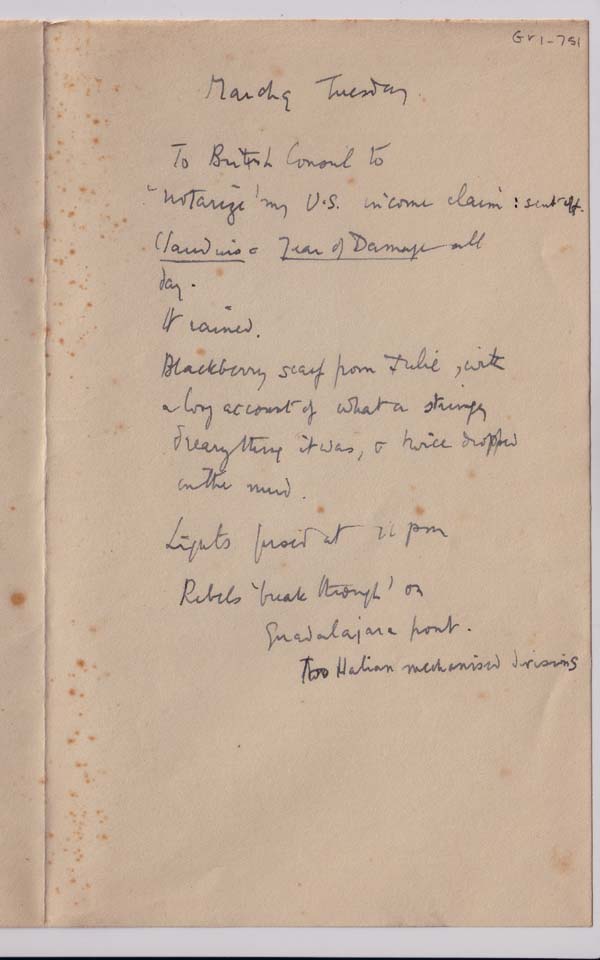 Gr1-751
March 9 Tuesday
To British Consul to
'notarize' my U.S. income claim : sent off.
Claudius & Year of Damage all
day.
It rained.
Blackberry scarf from Julie, with
a long account of what a stringy
dreary thing it was, & twice dropped
in the mud.
Lights fused at 11 pm
Rebels 'break through' on
Guadalajara front.
Two Italian mechanised divisions